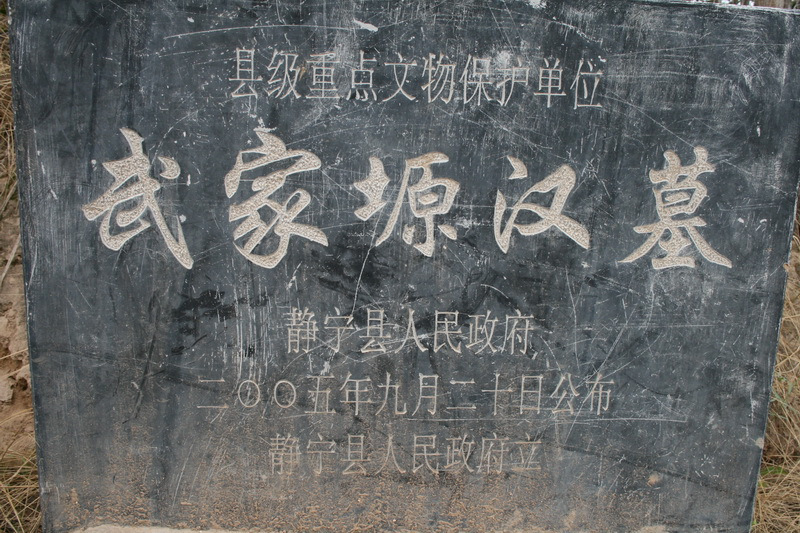 县级重点文物保护单位
武家塬汉墓
静宁县人民政府
二〇〇五年九月二十日公布
静宁县人民政府立